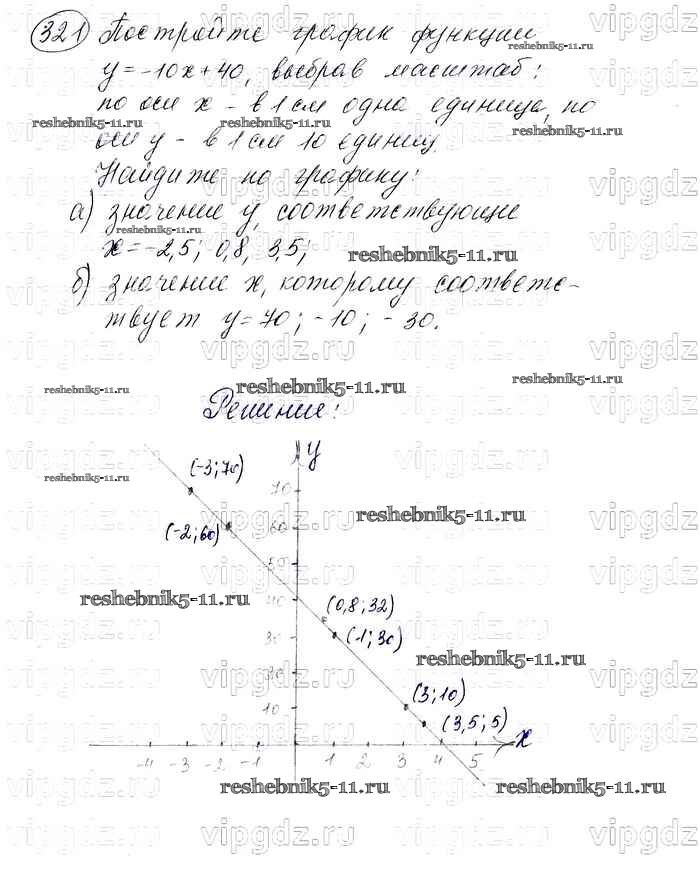 321 Постройте график функции
y=-10x+40, выбрав масштаб:
по оси x - в 1 см одна единица, по
оси y - в 1 см 10 единиц.
Найдите по графику:
а) значение y, соответствующие
x=-2,5; 0,8, 3,5;
б) значение x, которому соответс-
твует y=70; -10; -30.
Решение:
y
(-3;70)
70
(-2;60)
60
50
40
(0,8;32)
30
(-1;30)
20
(3;10)
10
(3,5;5)
x
-4 -3 -2 -1 1 2 3 4 5
reshebnik5-11.ru
vipgdz.ru